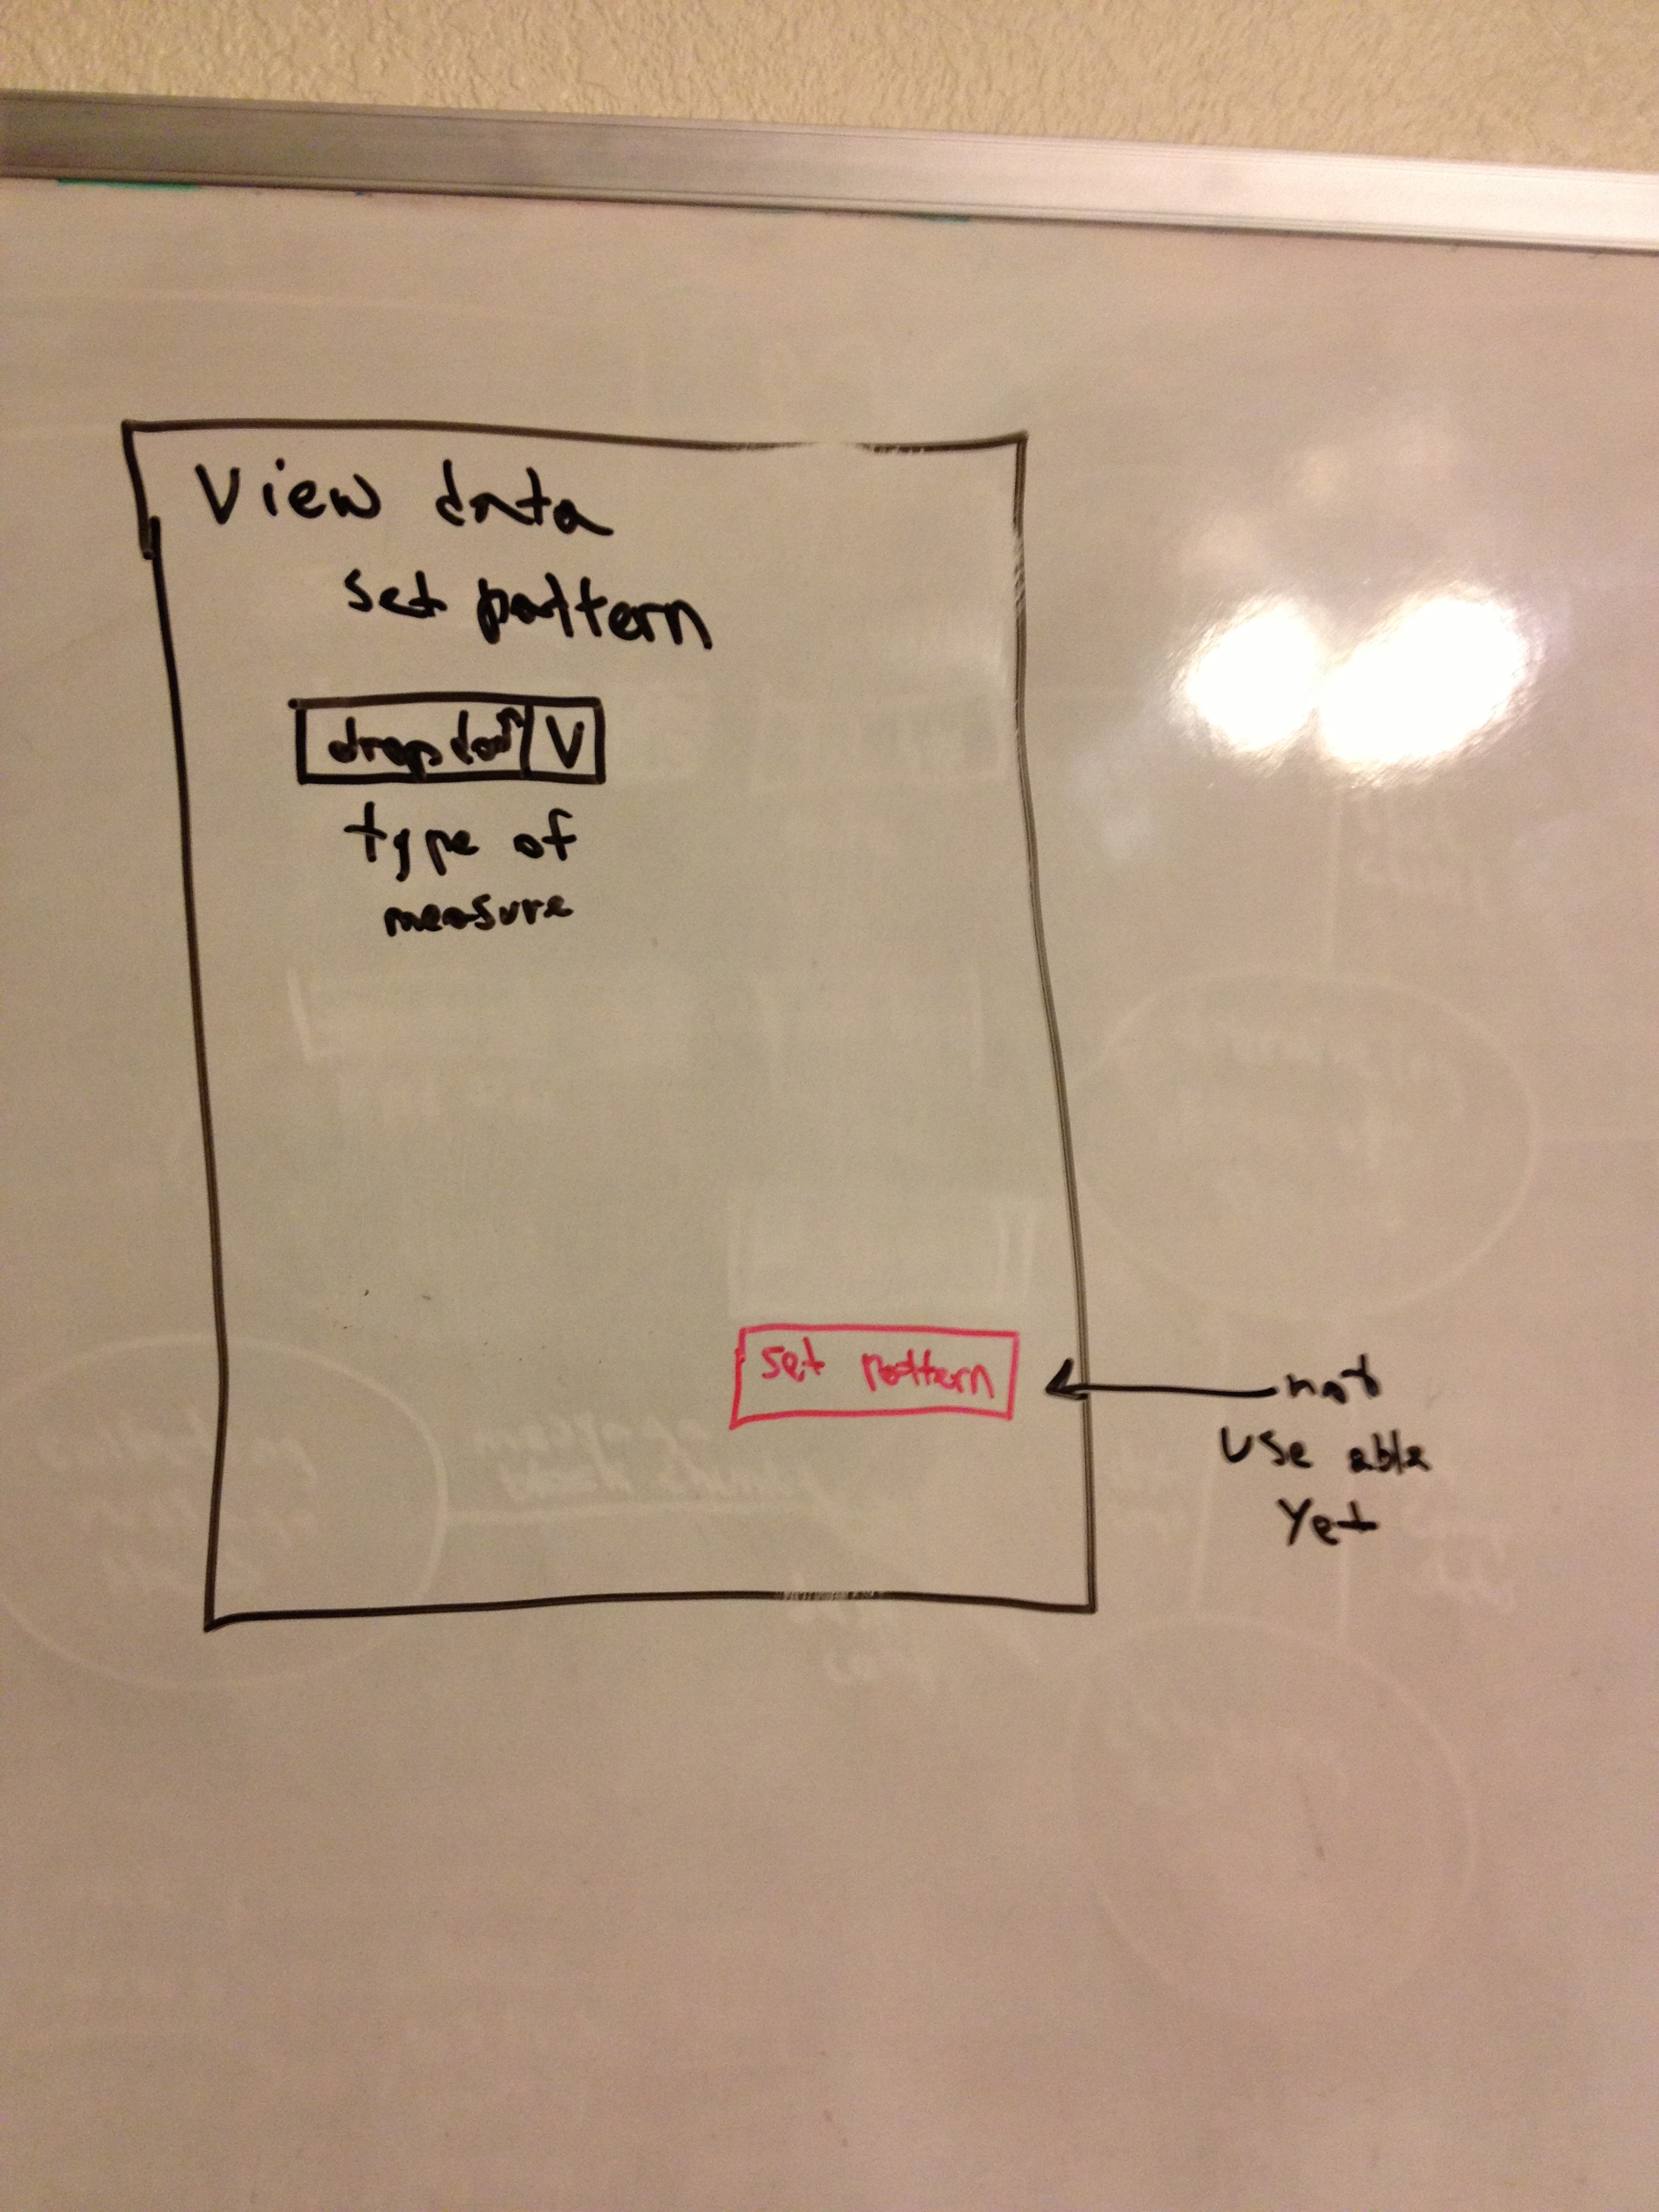 View data
set pattern
dropdown V
type of
measure
set pattern
not
use able
yet